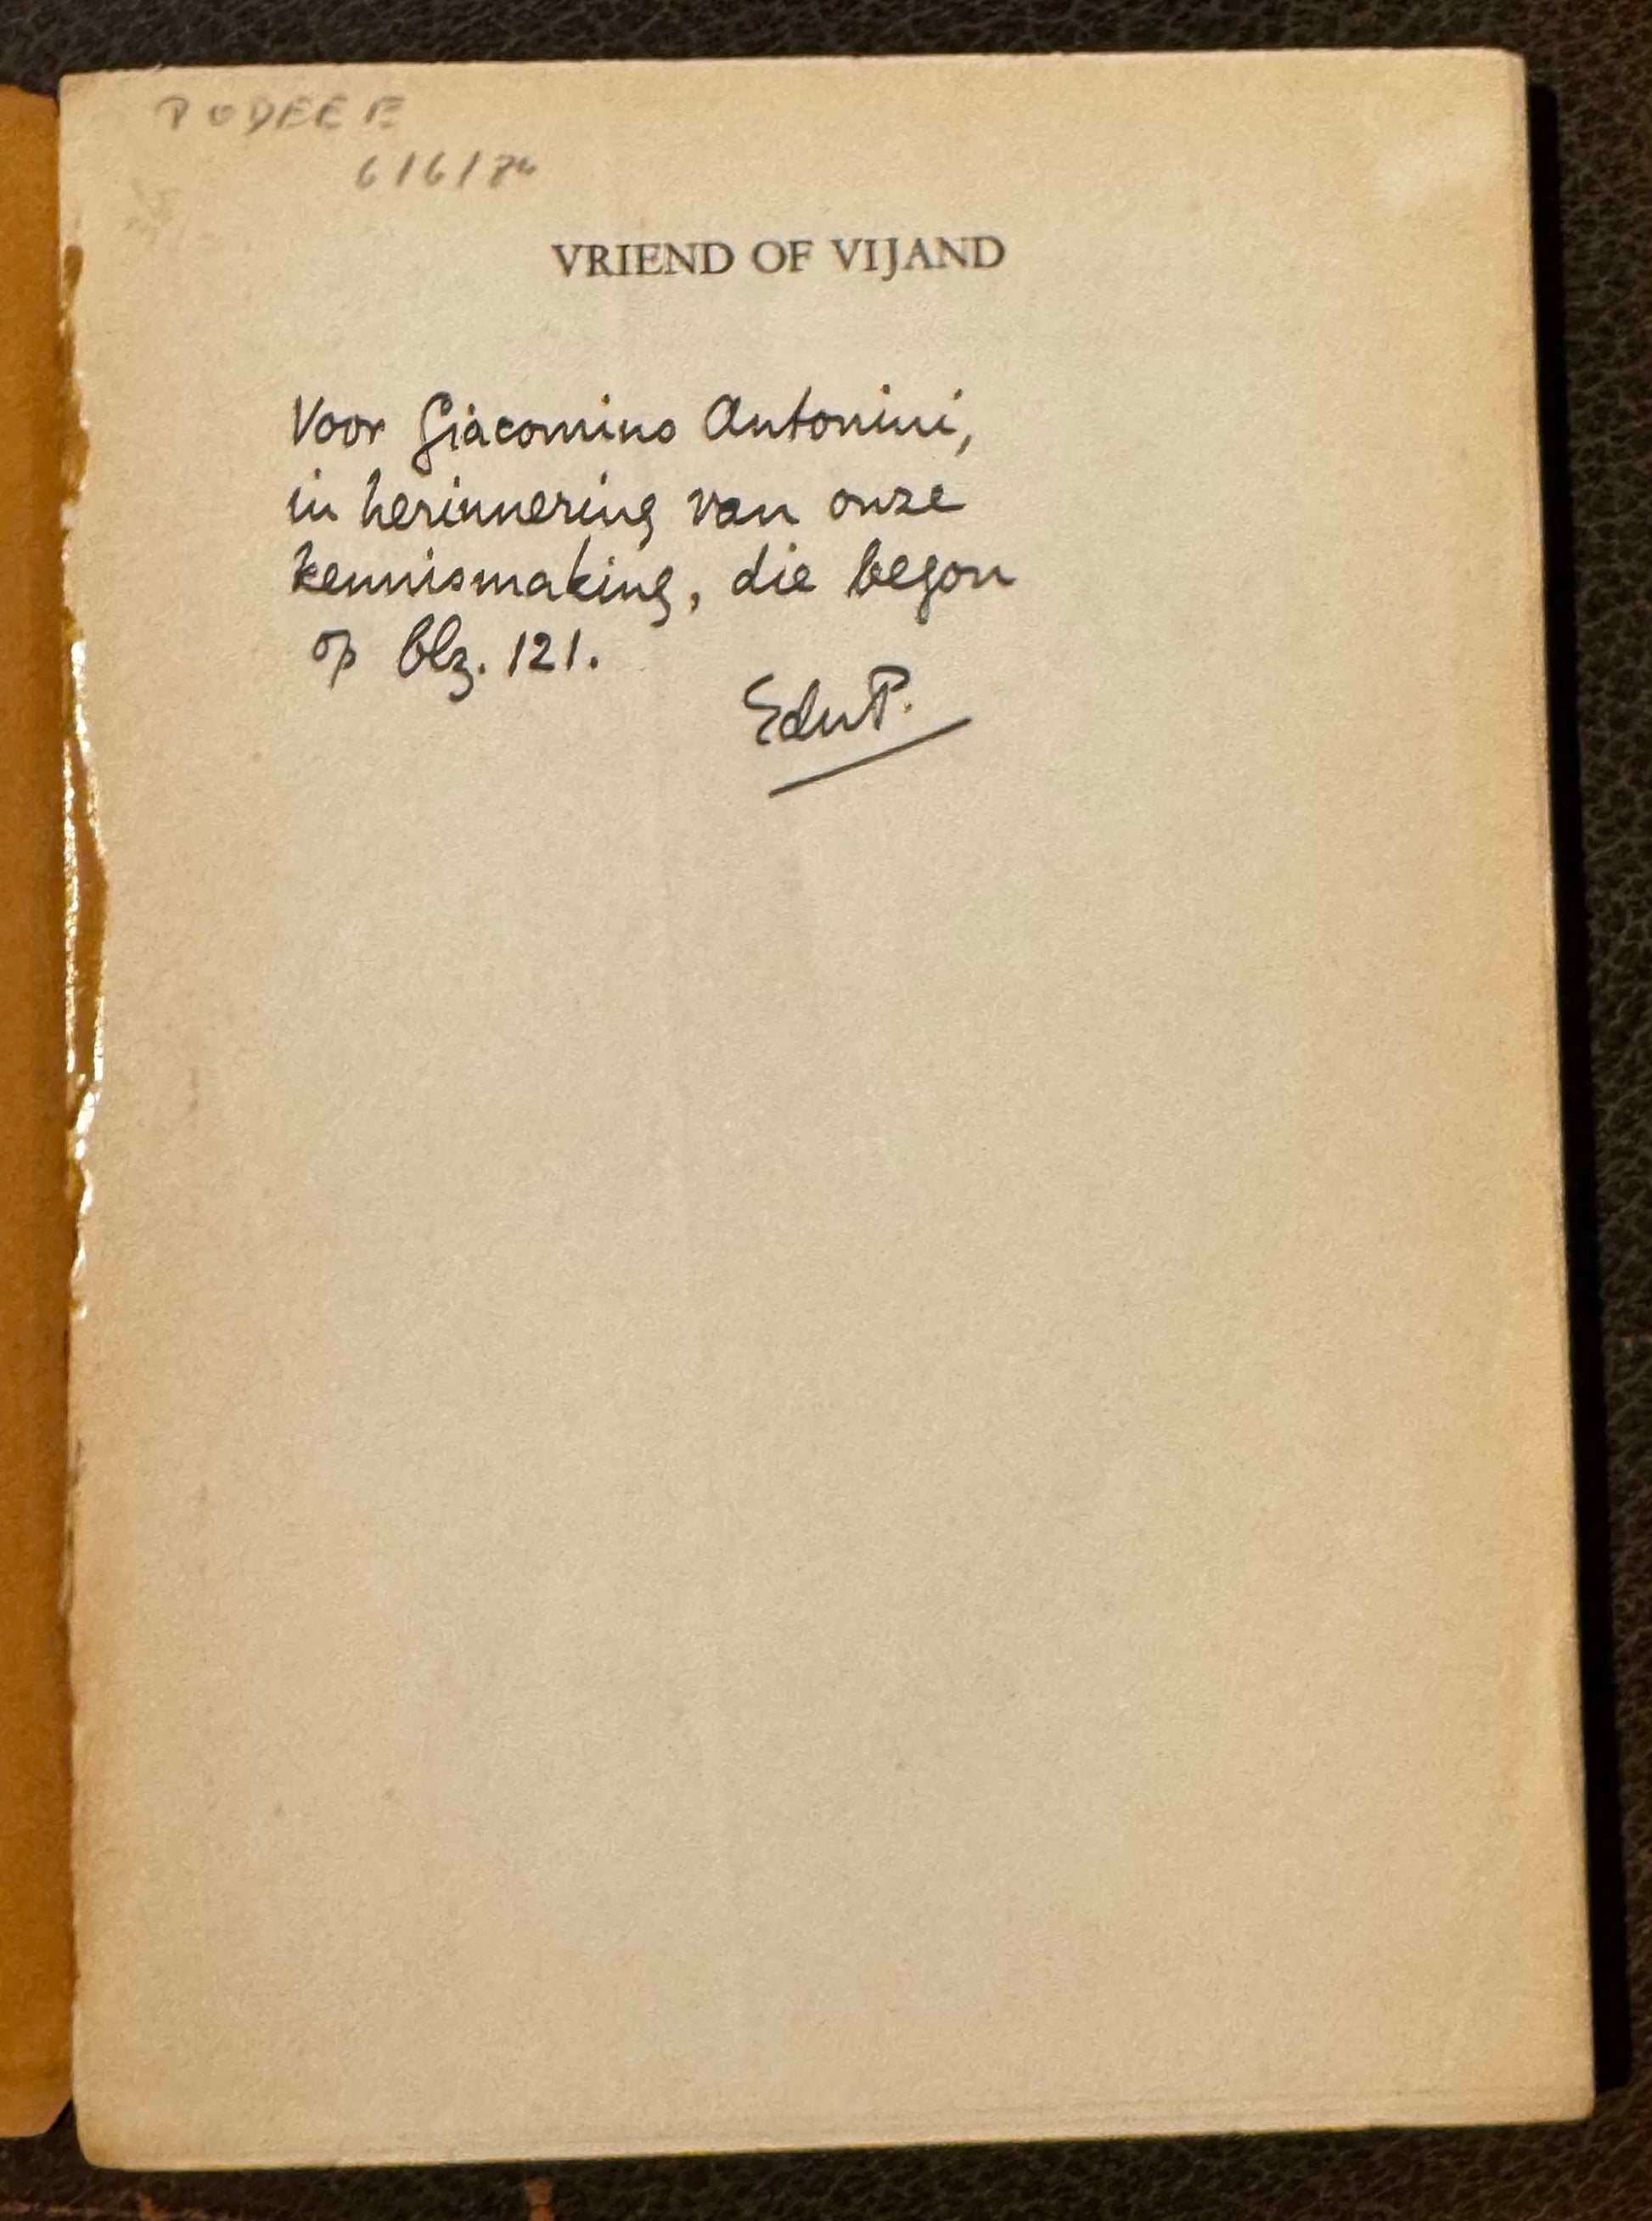 6/6/76
VRIEND OF VIJAND
Voor Giacomino Antonini,
in herinnering van onze
kennismaking, die begon
op blz. 121.
EduP.